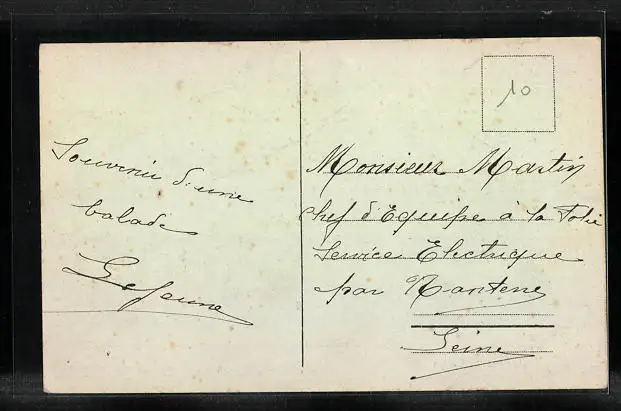 Souvenir d'une
balade
Lejeune
10
Monsieur Martin
Chef d'Equipe à la Folie
Service Electrique
par Nanterre
Seine